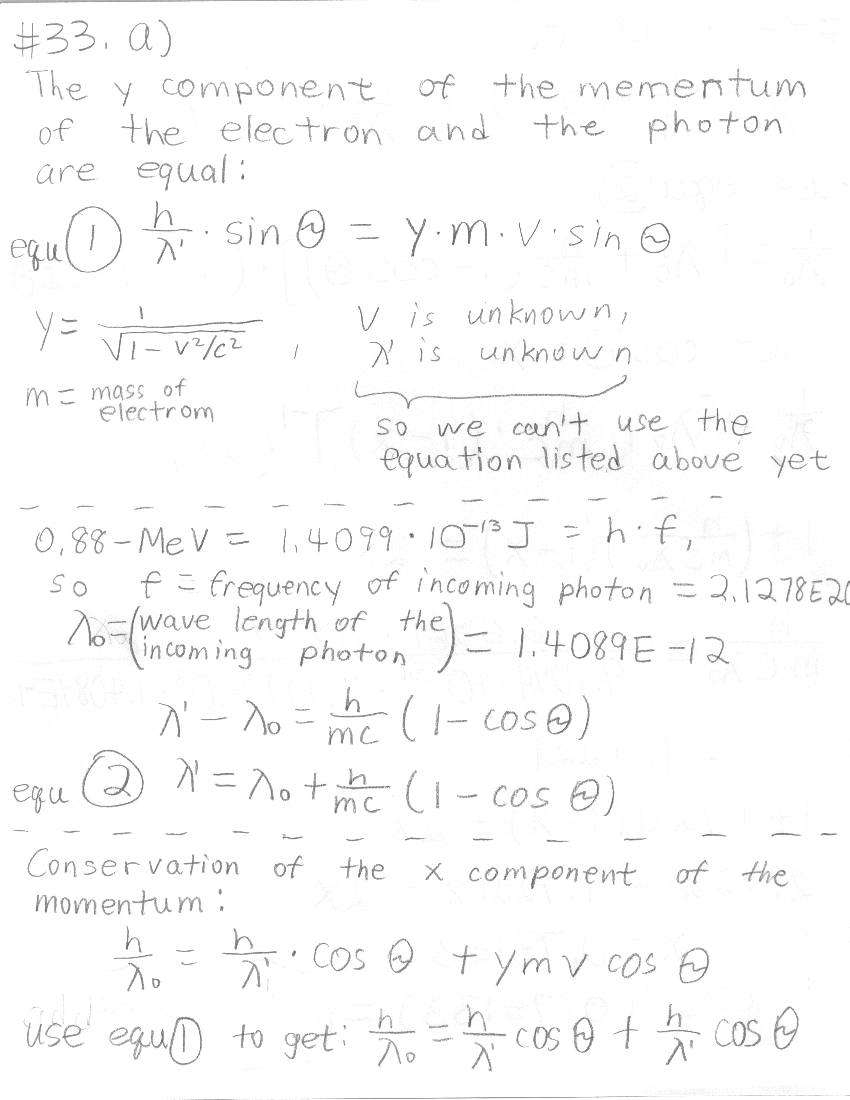 #33. a)
The y component of the mementum
of the electron and the photon
are equal:
equ ① h/λ' · sin Θ = γ·m·v·sin Θ
γ = 1/√(1 - v²/c²) , v is unknown,
λ' is unknown
m = mass of
electrom
so we can't use the
equation listed above yet
0.88-MeV = 1.4099·10⁻¹³ J = h·f,
so f = frequency of incoming photon = 2.1278E20
λ₀ = (wave length of the
incoming photon) = 1.4089E-12
λ' - λ₀ = h/mc (1 - cos Θ)
equ ② λ' = λ₀ + h/mc (1 - cos Θ)
Conservation of the x component of the
momentum:
h/λ₀ = h/λ' · cos Θ + γmv cos Θ
use equ ① to get: h/λ₀ = h/λ' cos Θ + h/λ' cos Θ